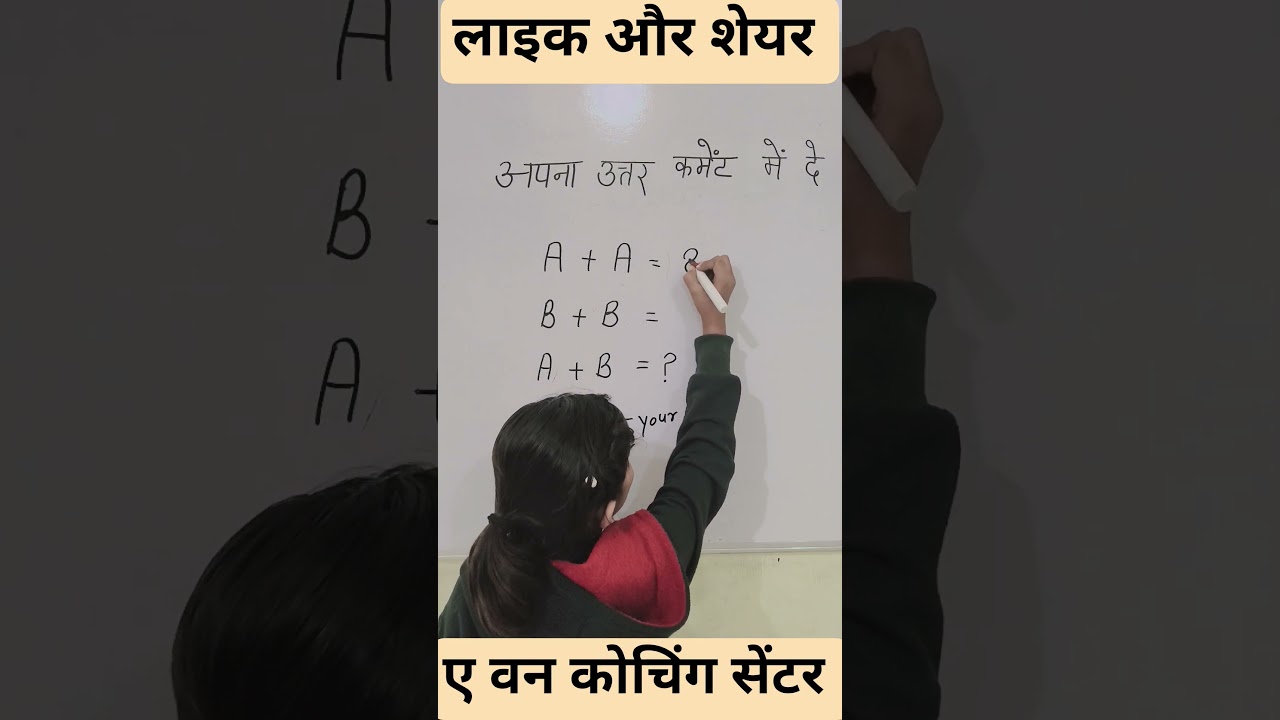 लाइक और शेयर
अपना उत्तर कमेंट में दे
A + A =
B + B =
A + B = ?
your
ए वन कोचिंग सेंटर